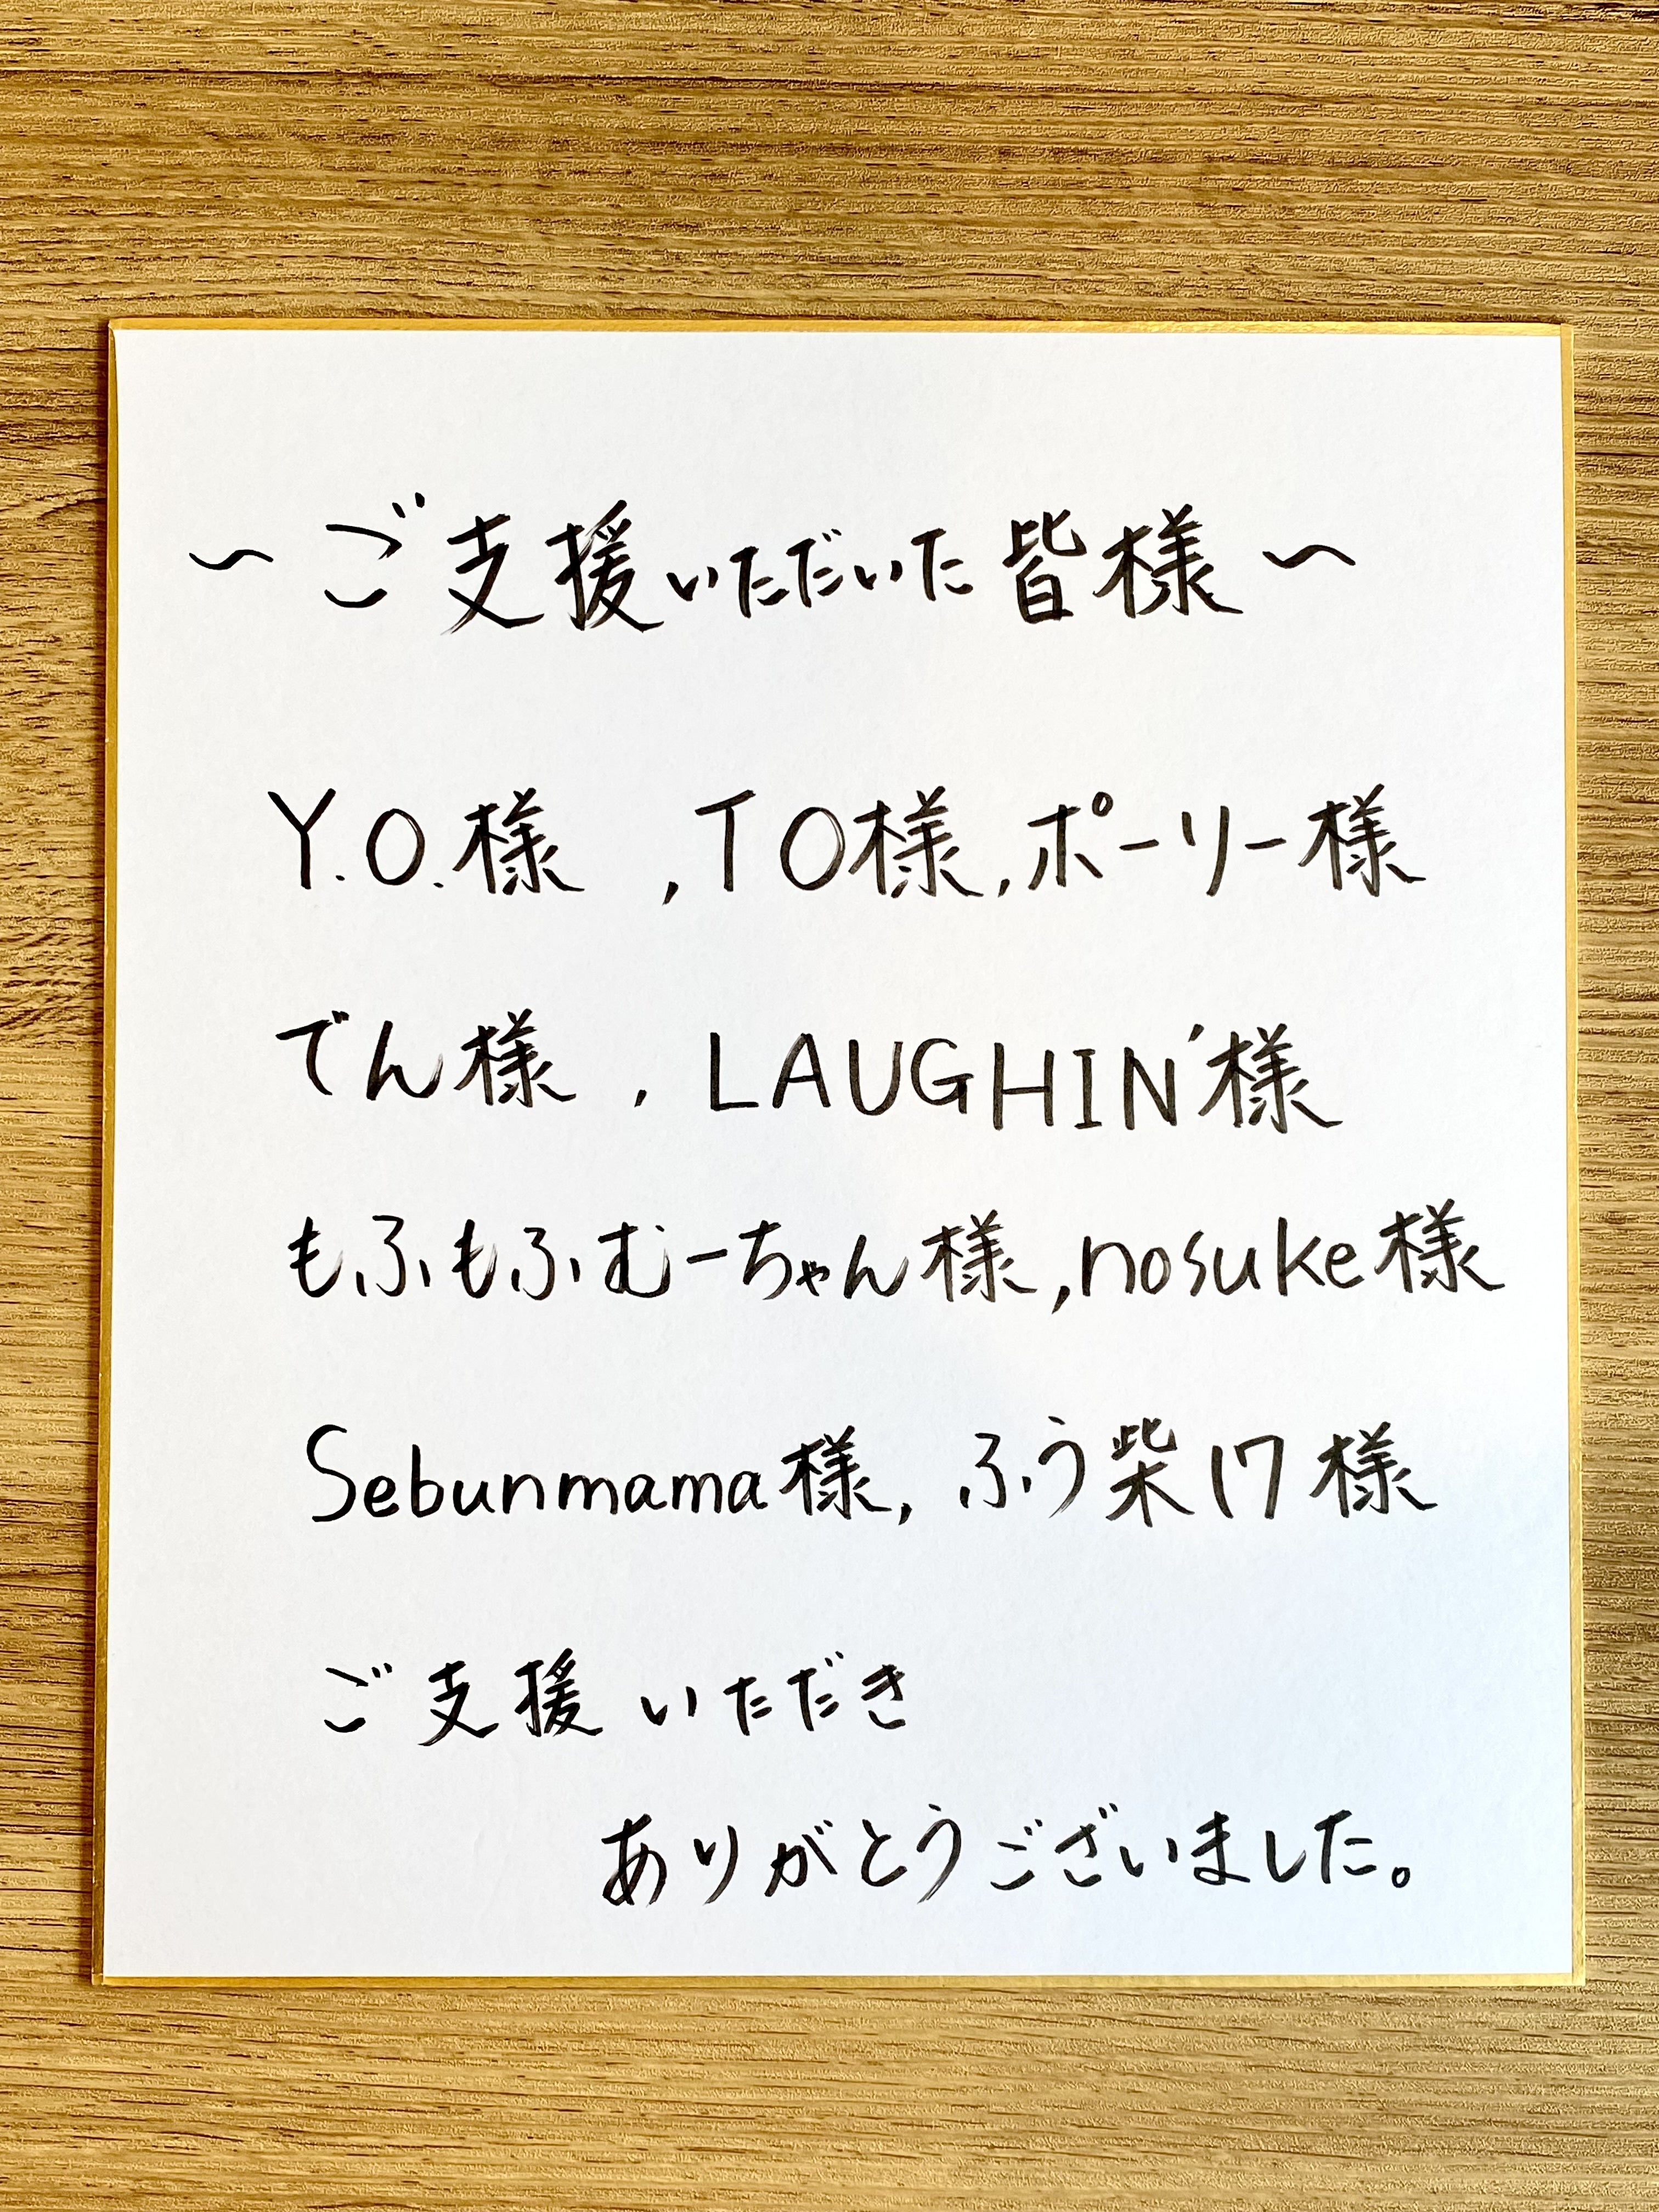 ～ご支援いただいた皆様～
Y.O.様 ,TO様,ポーリー様
でん様 , LAUGHIN'様
もふもふむーちゃん様,nosuke様
Sebunmama様, ふう柴17様
ご支援いただき
ありがとうございました。